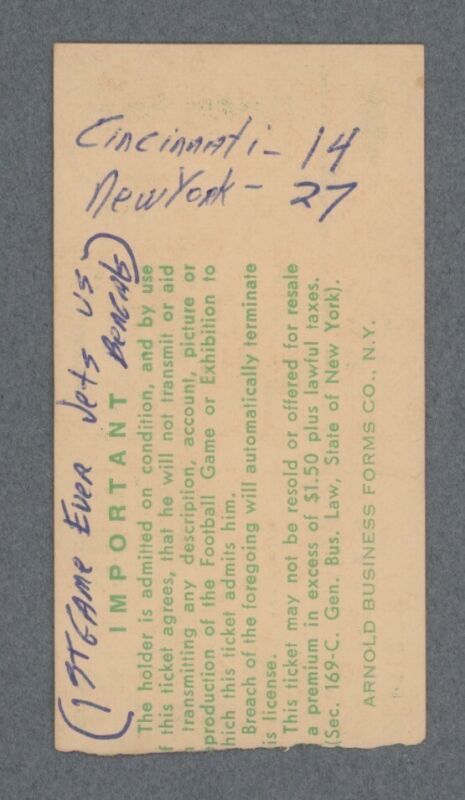 Cincinnati - 14
New York - 27
(1ST GAME EVER Jets VS
BENGALS)
IMPORTANT
The holder is admitted on condition, and by use
f this ticket agrees, that he will not transmit or aid
transmitting any description, account, picture or
production of the Football Game or Exhibition to
hich this ticket admits him.
Breach of the foregoing will automatically terminate
is license.
This ticket may not be resold or offered for resale
a premium in excess of $1.50 plus lawful taxes.
(Sec. 169-C. Gen. Bus. Law, State of New York).
ARNOLD BUSINESS FORMS CO., N.Y.